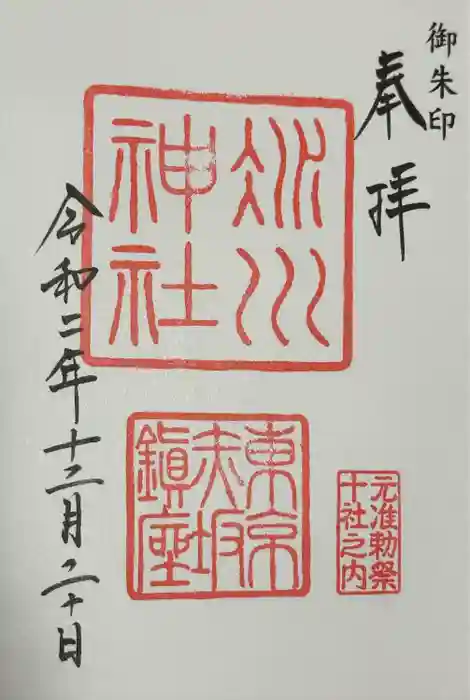 御朱印
奉拝
氷川
神社
東京
赤坂
鎮座
元准勅祭
十社之内
令和二年十二月二十日